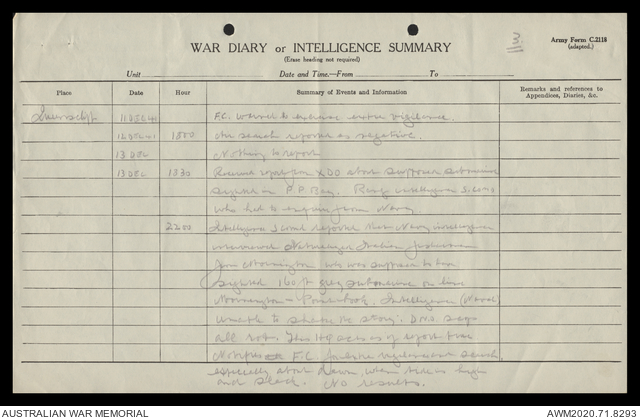 3.
Army Form C.2118
(adapted.)
WAR DIARY or INTELLIGENCE SUMMARY
(Erase heading not required)
Unit Date and Time.—From To
Place Date Hour Summary of Events and Information Remarks and references to Appendices, Diaries, &c.
Queenscliff 11 DEC 41 F.C. warned to exercise extra vigilance.
12 DEC 41 1800 Air search reported as negative.
13 DEC Nothing to report
13 DEC 1830 Received report from XDO about supposed submarine
sighted in P.P. Bay. Rang intelligence S. Comd
who had to enquire from Navy
2200 Intelligence S Comd reported that Navy intelligence
interviewed Naturalized Italian fisherman
from Mornington who was supposed to have
sighted 160 ft grey submarine on line
Mornington - Intelligence (Naval)
unable to shake his story. D.N.O. says
all rot. This HQ of report
Notified F.C. vigilance and search
especially about dawn, when tide is high
and slack. No results.
AUSTRALIAN WAR MEMORIAL
AWM2020.71.8293